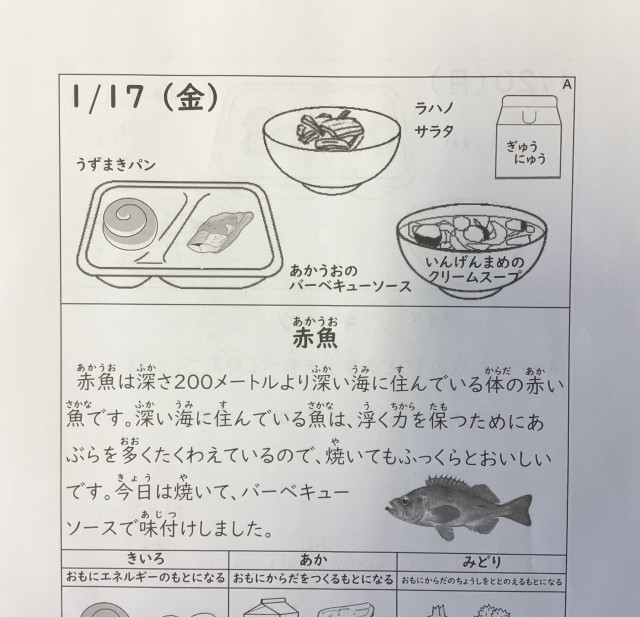 A
1/17（金）
ラハノ
サラタ
ぎゅう
にゅう
うずまきパン
あかうおの
バーベキューソース
いんげんまめの
クリームスープ
あかうお
赤魚
あかうお ふか ふか うみ す からだ あか
赤魚は深さ200メートルより深い海に住んでいる体の赤い
さかな ふか うみ す さかな う ちから たも
魚です。深い海に住んでいる魚は、浮く力を保つためにあ
おお や
ぶらを多くたくわえているので、焼いてもふっくらとおいしい
きょう や
です。今日は焼いて、バーベキュー
あじつ
ソースで味付けしました。
きいろ あか みどり
おもにエネルギーのもとになる おもにからだをつくるもとになる おもにからだのちょうしをととのえるもとになる